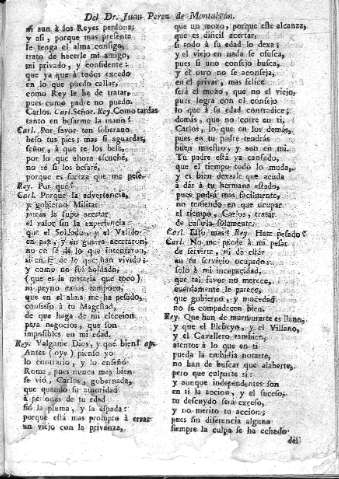 Del Dr. Juan Perez de Montalván.
ni aun à los Reyes perdona;
y asi, porque mas presente
se tenga el alma conmigo,
trato de hacerle mi amigo,
mi privado, y confidente:
que ya que à todos excedo
en lo que puedo callar,
como Rey le ha de tratar,
pues como padre no puedo.
Carlos. Carl. Señor. Rey. Como tardas
tanto en besarme la mano?
Carl. Por favor tan soberano
beso tus pies; mas si aguardas,
señor, à que te los bese,
por lo que ahora escuché,
no sé si los besaré,
porque es fuerza que me pese.
Rey. Por qué?
Carl. Porque la advertencia,
y gobierno Militar
jamás le supo acertar
el valor sin la experiencia:
que el Soldado, y el Valido
en paz, y en guerra acertaron,
no en fé de lo que intentaron,
si en fé de lo que han vivido;
y como no soi Soldado,
(que es la materia que toco)
ni peyno canas tampoco,
que en el alma me ha pesado,
confieso à tu Magestad,
de que haga de mi eleccion
para negocios, que son
imposibles en mi edad.
Rey. Valgame Dios, y qué bien! ap.
Antes (oye) pierdo yo
lo contrario, y lo enseñó
Roma, pues nunca mas bien
se vió, Carlos, gobernada,
que quando su autoridad
à personas de tu edad
fió la pluma, y la espada:
porque está mas prompto à errar
un viejo con la privanza,
que un mozo, porque este alcanza,
que es dificil acertar,
si todo à su edad lo dexe;
y el viejo en nada se ofusca,
pues si uno consejo busca,
y el otro no se aconseja,
en el privar, mas felice
será el mozo, que no el viejo,
pues logra con el consejo
lo que à su edad contradice;
demás, que no corre en ti,
Carlos, lo que en los demás,
pues en tu padre tendrás
buen maestro, y aun en mi.
Tu padre está ya cansado,
que el tiempo todo lo muda,
y es bien dexarle que acuda
à dár à tu hermana estado,
pues podrá mas facilmente,
no teniendo en que ocupar
el tiempo, Carlos, tratar
de casarla solamente.
Carl. Esso mas? Rey. Hate pesado?
Carl. No me pesa à mi pesar
de servirte, ni de estár
en tu servicio ocupado;
solo à mi incapacidad,
que tal favor no merece,
mayormente le parece,
que gobierno, y mocedad
no se compadecen bien.
Rey. Que han de murmurarte es llano,
y que el Plebeyo, y el Villano,
y el Cavallero tambien,
atentos à lo que en ti
pueda la embidia notarte,
no han de buscar que alabarte,
pero que culparte sí:
y aunque independentes son
en ti la accion, y el suceso,
tu descuydo será exceso,
y no merito tu accion;
pues sin diferencia alguna
siempre la culpa se ha echado
del